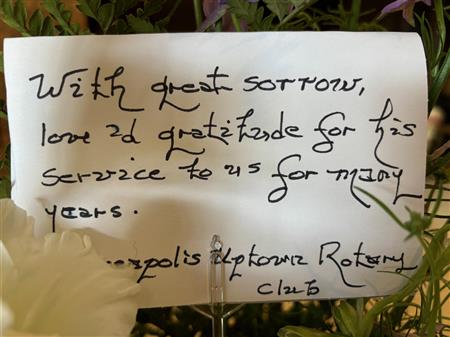 With great sorrow,
love 2d gratitude for his
service to us for many
years.
Uptown Rotary
Club